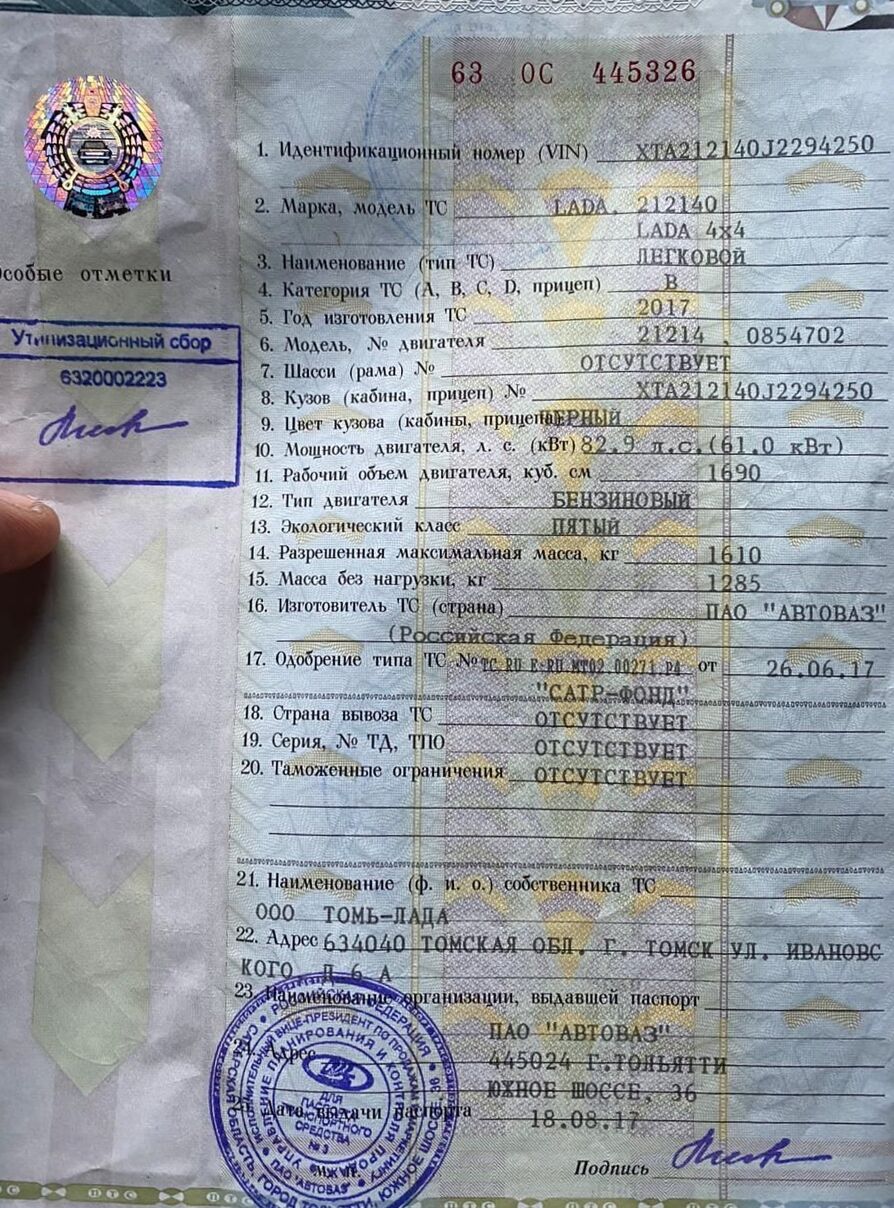 63 ОС 445326
1. Идентификационный номер (VIN) XTA212140J2294250
2. Марка, модель ТС LADA, 212140
LADA 4x4
3. Наименование (тип ТС) ЛЕГКОВОЙ
4. Категория ТС (A, B, C, D, прицеп) B
5. Год изготовления ТС 2017
6. Модель, № двигателя 21214 , 0854702
7. Шасси (рама) № ОТСУТСТВУЕТ
8. Кузов (кабина, прицеп) № XTA212140J2294250
9. Цвет кузова (кабины, прицепа) ЧЕРНЫЙ
10. Мощность двигателя, л. с. (кВт) 82.9 л.с.(61.0 кВт)
11. Рабочий объем двигателя, куб. см 1690
12. Тип двигателя БЕНЗИНОВЫЙ
13. Экологический класс ПЯТЫЙ
14. Разрешенная максимальная масса, кг 1610
15. Масса без нагрузки, кг 1285
16. Изготовитель ТС (страна) ПАО "АВТОВАЗ"
(Российская Федерация)
17. Одобрение типа ТС № ТС RU Е-RU.МТ02.00271.Р4 от 26.06.17
"САТР-ФОНД"
18. Страна вывоза ТС ОТСУТСТВУЕТ
19. Серия, № ТД, ТПО ОТСУТСТВУЕТ
20. Таможенные ограничения ОТСУТСТВУЕТ
21. Наименование (ф. и. о.) собственника ТС
ООО ТОМЬ-ЛАДА
22. Адрес 634040 ТОМСКАЯ ОБЛ. Г. ТОМСК УЛ. ИВАНОВС
КОГО Д.6 А
23. Наименование организации, выдавшей паспорт
ПАО "АВТОВАЗ"
24. Адрес 445024 Г.ТОЛЬЯТТИ
ЮЖНОЕ ШОССЕ, 36
Дата выдачи паспорта 18.08.17
М.П.
Подпись
Особые отметки
Утилизационный сбор
6320002223
РОССИЙСКАЯ ФЕДЕРАЦИЯ
ВИЦЕ-ПРЕЗИДЕНТ ПО ПРОДАЖАМ И МАРКЕТИНГУ
ПЛАНИРОВАНИЯ И КОНТРОЛЯ
ПАО "АВТОВАЗ"
ДЛЯ
ПАСПОРТОВ
ТРАНСПОРТНОГО
СРЕДСТВА
№ 3
ПТС
ПТС